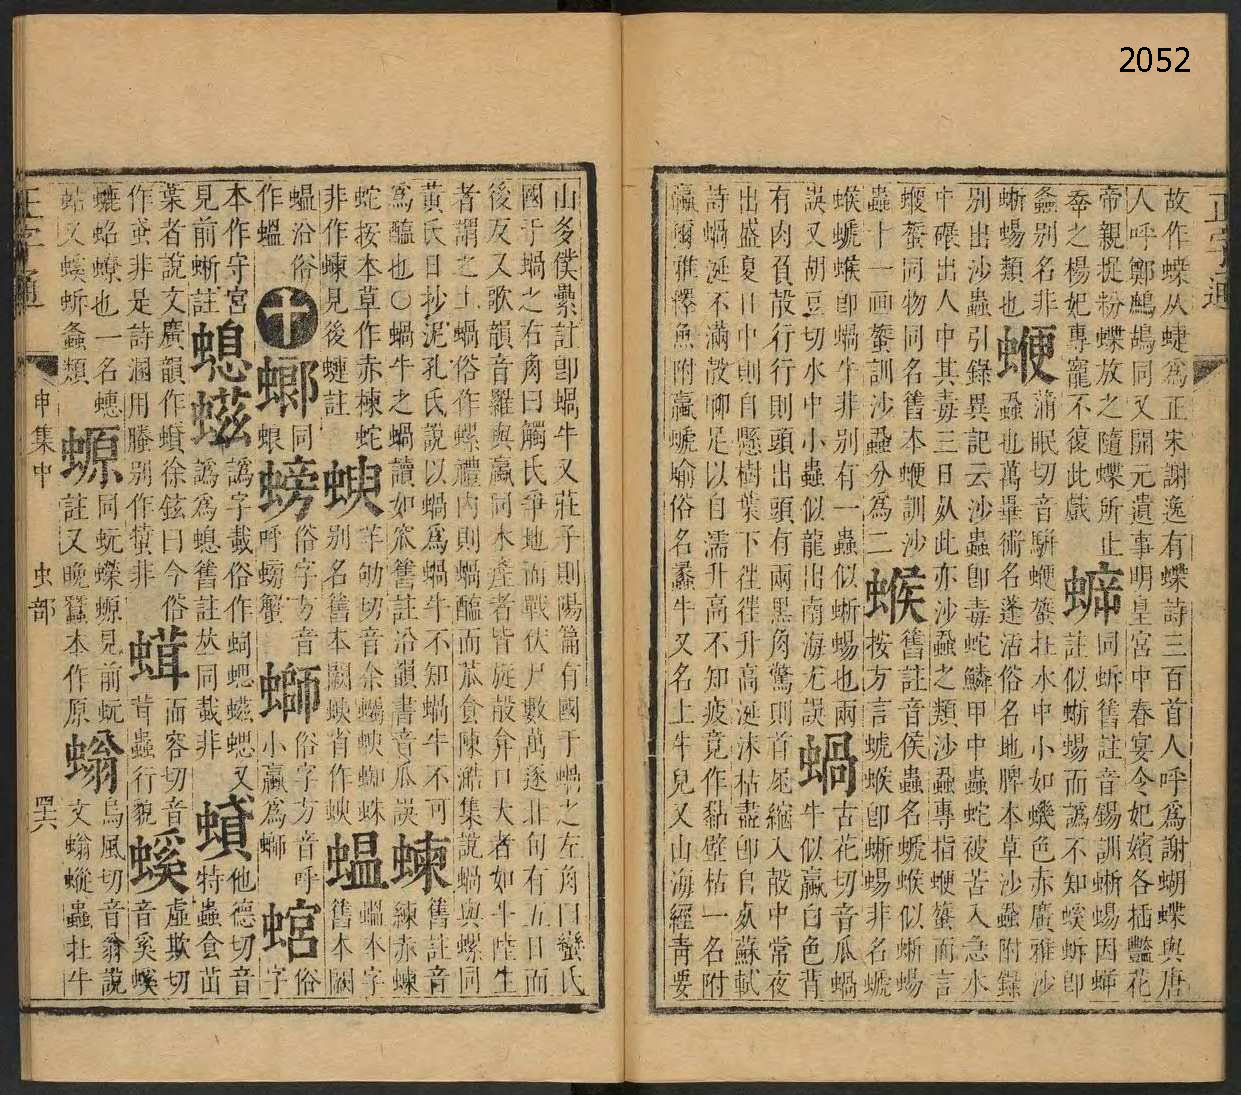 2052
正字通
故作蝶从蜨爲正宋謝逸有蝶詩三百首人呼爲謝蝴蝶與唐
人呼鄭鷓鴣同又開元遺事明皇宮中春宴令妃嬪各插豔花
帝親捉粉蝶放之隨蝶所止 䗁 同蚸舊註音錫訓蜥蜴因䗁
幸之楊妃專寵不復此戲 註似蜥蜴而譌不知螇蚸卽
螽別名非 蝒眠切音騈蝒蠜在水中小如蟣色赤廣雅沙
蜥蜴類也 蝒 蝨也萬畢術名蓬活俗名地脾本草沙蝨附錄
別出沙蟲引錄異記云沙蟲卽毒蛇鱗甲中蟲蛇被苦入急水
中碾出人中其毒三日死此亦沙蝨之類沙蝨專指蝒蠜而言
蝒蠜同物同名舊本蝒訓沙 舊註音侯蟲名螔蝬似蜥蜴
蟲十一画蠜訓沙蝨分爲二 㺅 按方言螔卽蜥蜴非名螔
卽蝸牛非別有一蟲似蜥蜴也兩 古花切音瓜蝸
誤又胡豆切水中小蟲似龍出南海尤誤 蝸 牛似蠃白色背
有肉負殼行行則頭出頭有兩黑角驚則首尾縮入殼中常夜
出盛夏日中則自懸樹葉下往往升高涎沫枯盡卽自死蘇軾
詩蝸涎不滿殼聊足以自濡升高不知疲竟作黏壁枯一名附
蠃爾雅釋魚附蠃螔蝓俗名蠡牛又名土牛兒又山海經靑要
山多僕纍註卽蝸牛又莊子則陽篇有國于蝸之左角曰蠻氏
國于蝸之右角曰觸氏爭地而戰伏尸數萬逐北旬有五日而
後反又歌韻音羅與蠃同水產者皆旋殼弇口大者如牛陸生
者謂之土蝸俗作螺禮內則蝸醢而苽食陳澔集說蝸與螺同
黃氏日抄泥孔氏說以蝸爲蝸牛不知蝸牛不可 舊註音
爲醢也○蝸牛之蝸讀如窊舊註沿韻書音瓜誤 蝀 練赤蝀
蛇按本草作赤楝蛇 羊劬切音余蠾蝓蜘蛛 蝹本字
非作蝀見後蝀註 蝡 別名舊本闕蝡省作蝡 蝹 舊本闕
蝹沿俗 同 俗字方音 俗字方音呼 俗
作蝹 十 螂 蜋 螃 呼螃蟹 螄 小蠃爲螄 䗆 字
本作守宮 譌字載俗作蜠螕蟋螕又 他德切音
見前蜥註 螅 螆 譌爲螅舊註丛同載非 蟘 特蟲食苗
葉者說文廣韻作蟘徐鉉曰今俗 而容切音 虛欺切
作䖵非是詩溷用螣別作蟘非 䗸 茸蟲行貌 螇 音奚螇
蟅蛒蟟也一名蟪 同蚖蠑螈見前蚖 烏風切音翁說
蛄又螇蚸螽類 螈 註又晚蠶本作原 螉 文螉䗥蟲在牛
正字通
申集中
虫部
罢六